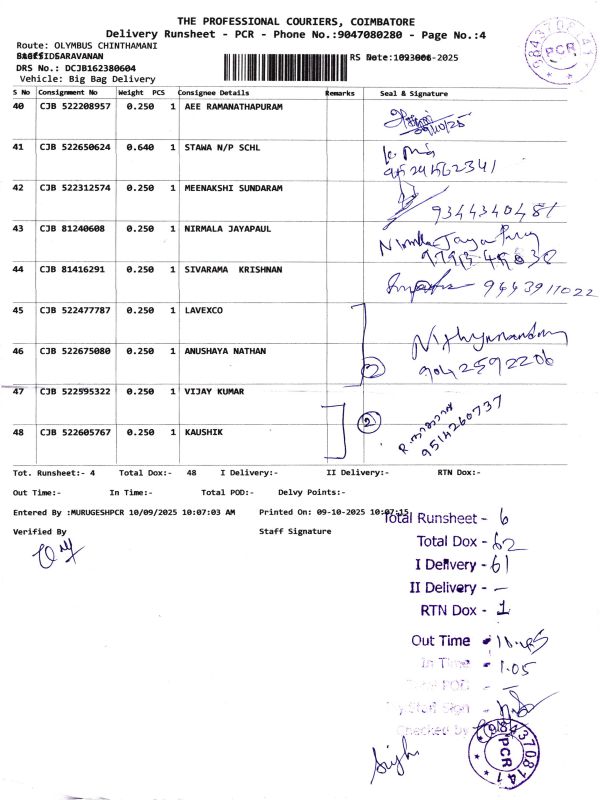 THE PROFESSIONAL COURIERS, COIMBATORE
Delivery Runsheet - PCR - Phone No.:9047080280 - Page No.:4
Route: OLYMBUS CHINTHAMANI
SARAVANAN
RS Date: -2025
DRS No.: DCJB162380604
Vehicle: Big Bag Delivery
S No Consignment No Weight PCS Consignee Details Remarks Seal & Signature
40 CJB 522208957 0.250 1 AEE RAMANATHAPURAM
41 CJB 522650624 0.640 1 STAWA N/P SCHL
9524562341
42 CJB 522312574 0.250 1 MEENAKSHI SUNDARAM
9344340481
43 CJB 81240608 0.250 1 NIRMALA JAYAPAUL
44 CJB 81416291 0.250 1 SIVARAMA KRISHNAN
9443911022
45 CJB 522477787 0.250 1 LAVEXCO
46 CJB 522675080 0.250 1 ANUSHAYA NATHAN
9042592206
47 CJB 522595322 0.250 1 VIJAY KUMAR
2
48 CJB 522605767 0.250 1 KAUSHIK
9514260737
Tot. Runsheet:- 4 Total Dox:- 48 I Delivery:- II Delivery:- RTN Dox:-
Out Time:- In Time:- Total POD:- Delvy Points:-
Entered By :MURUGESHPCR 10/09/2025 10:07:03 AM Printed On: 09-10-2025 10:07:15
Verified By Staff Signature
Total Runsheet - 6
Total Dox - 62
I Delivery - 61
II Delivery - —
RTN Dox - 1
Out Time - 11.45
In Time - 1.05
Staff Sign -
Checked by
9843708141
PCR